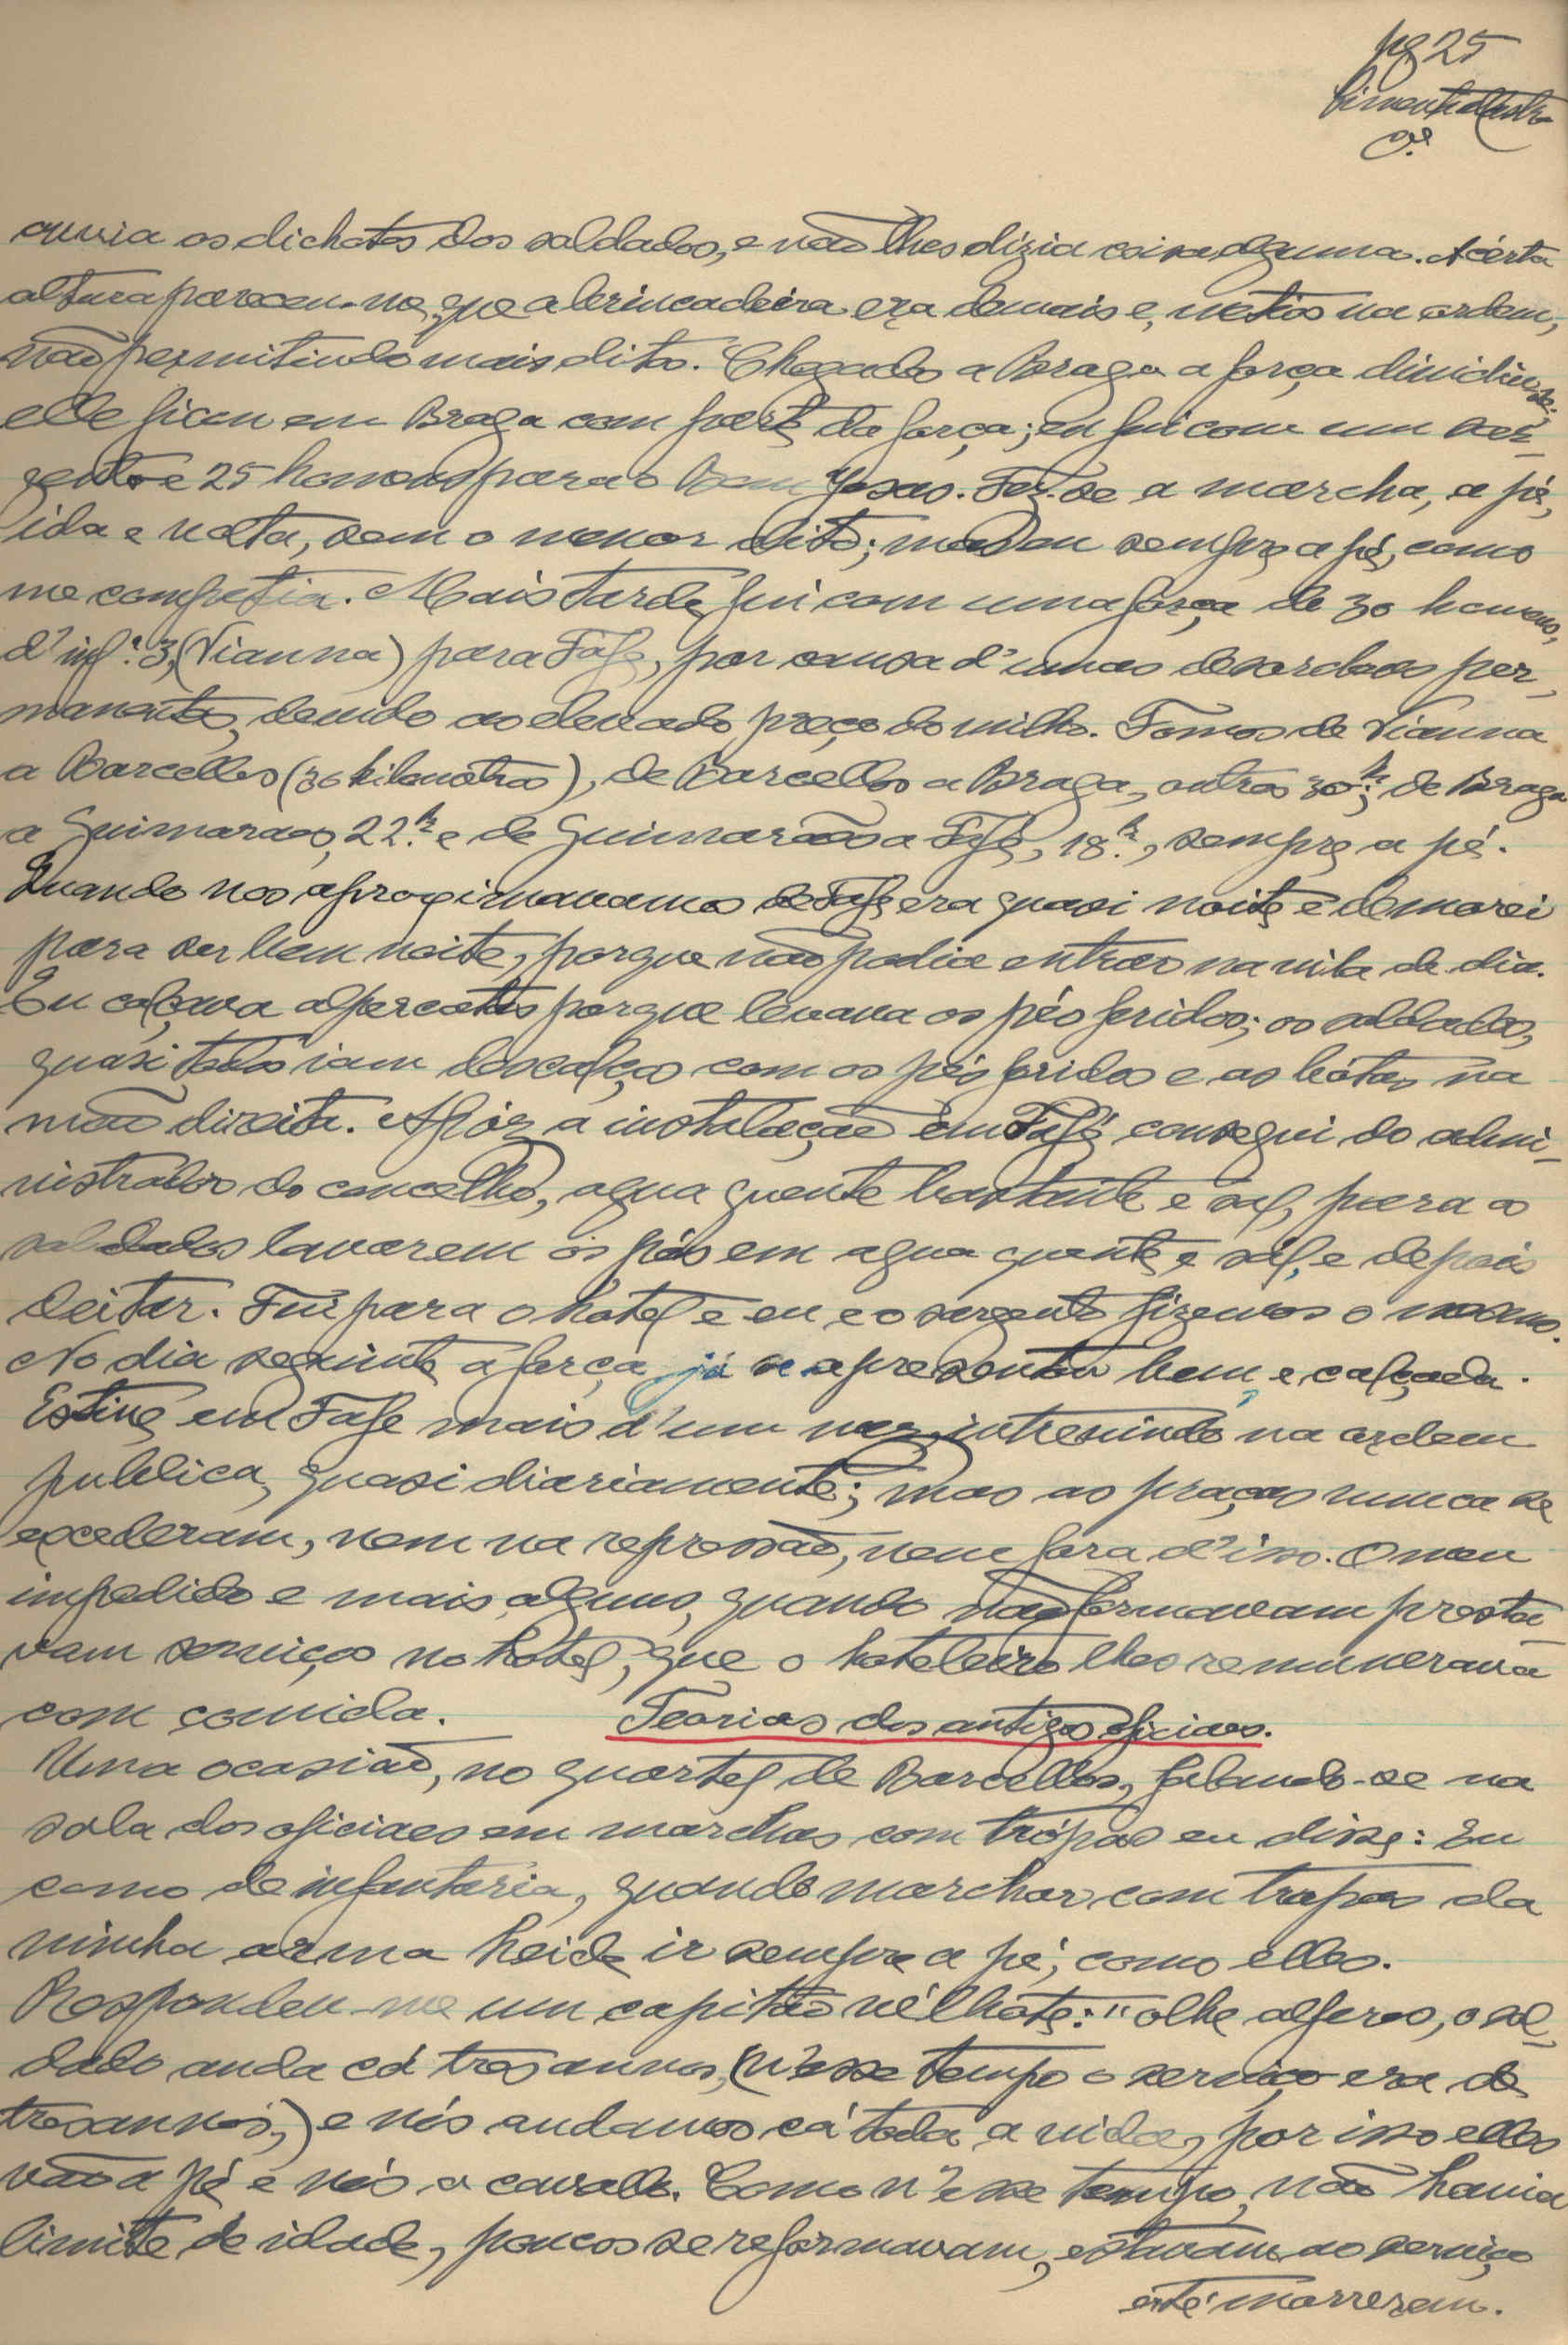 pg 25
Pimenta de Castro
ouvia os dichotes dos soldados, e não lhes dizia coisa alguma. A certa
altura pareceu-me que a brincadeira era demais e, meti-os na ordem,
não permitindo mais ditos. Chegados a Braga a força dividiu-se:
elle ficou em Braga com parte da força; eu fui com um sar-
gento e 25 homens para o Bom Jesus. Fez-se a marcha, a pé,
ida e volta, sem o menor dito; mas eu sempre a pé, como
me competia. Mais tarde fui com uma força de 30 homens,
d'inf.ª 3, (Vianna) para Fafe, por causa d'umas desordens per-
manentes, devido ao elevado preço do milho. Fomos de Vianna
a Barcellos (30 kilometros), de Barcellos a Braga, outros 30 k.; de Braga
a Guimaraes, 22 k. e de Guimarães a Fafe, 18 k., sempre a pé.
Quando nos aproximavamos de Fafe era quasi noite e demorei
para ser bem noite, porque não podia entrar na vila de dia.
Eu calçava alpercatas porque levava os pés feridos; os soldados,
quasi todos iam descalços com os pés feridos e as bótas na
mão direita. Apóz a instalação em Fafe consegui do admi-
nistrador do concelho, agua quente bastante e sal, para os
soldados lavarem os pés em agua quente e sal, e depois
deitar. Fui para o hotel e eu e o sargento fizemos o mesmo.
No dia seguinte a força já se apresentou bem, e calçada.
Estive em Fafe mais d'um mez, intrevindo na ordem
publica, quasi diariamente; mas as praças nunca se
excederam, nem na repressão, nem fora d'isso. O meu
impedido e mais alguns, quando não formavam presta-
vam serviços no hotel, que o hoteleiro lhes remunerava
com comida. Teorias dos antigos oficiaes.
Uma ocasião, no quartel de Barcellos, falando-se na
sala dos oficiaes em marchas com trópas eu disse: Eu
como de infantaria, quando marchar com tropas da
minha arma heide ir sempre a pé, como elles.
Respondeu-me um capitão vélhote: "olhe alferes, o sol-
dado anda cá tres annos, (n'esse tempo o serviço era de
tres annos,) e nós andamos cá toda a vida, por isso elles
vão a pé e nós a cavallo. Como n'esse tempo, não havia
limite de idade, poucos se reformavam, estavam ao serviço
até morrerem.